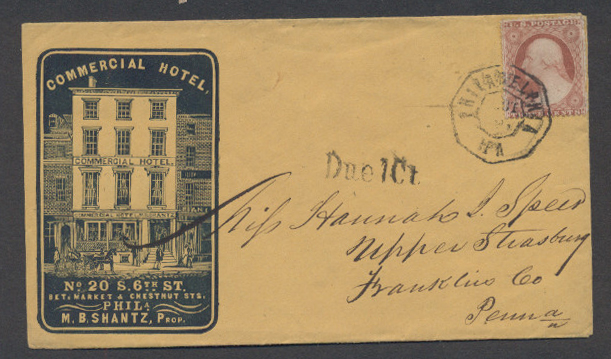 COMMERCIAL HOTEL,
COMMERCIAL HOTEL.
COMMERCIAL HOTEL M.B.SHANTZ
No. 20 S. 6TH ST.
BET. MARKET & CHESTNUT STS.
PHILA
M. B. SHANTZ, PROP.
U.S. POSTAGE
CENTS
PHILADELPHIA
PA
Due 1 Ct
Miss Hannah I. Speer
Upper Strasburg
Franklin Co
Penna